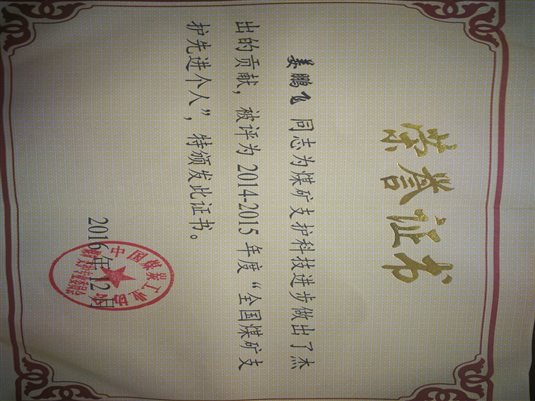 荣誉证书
姜鹏飞 同志为煤矿支护科技进步做出了杰
出的贡献，被评为 2014-2015 年度“全国煤矿支
护先进个人”，特颁发此证书。
中国煤炭工业
2016 年 12 月